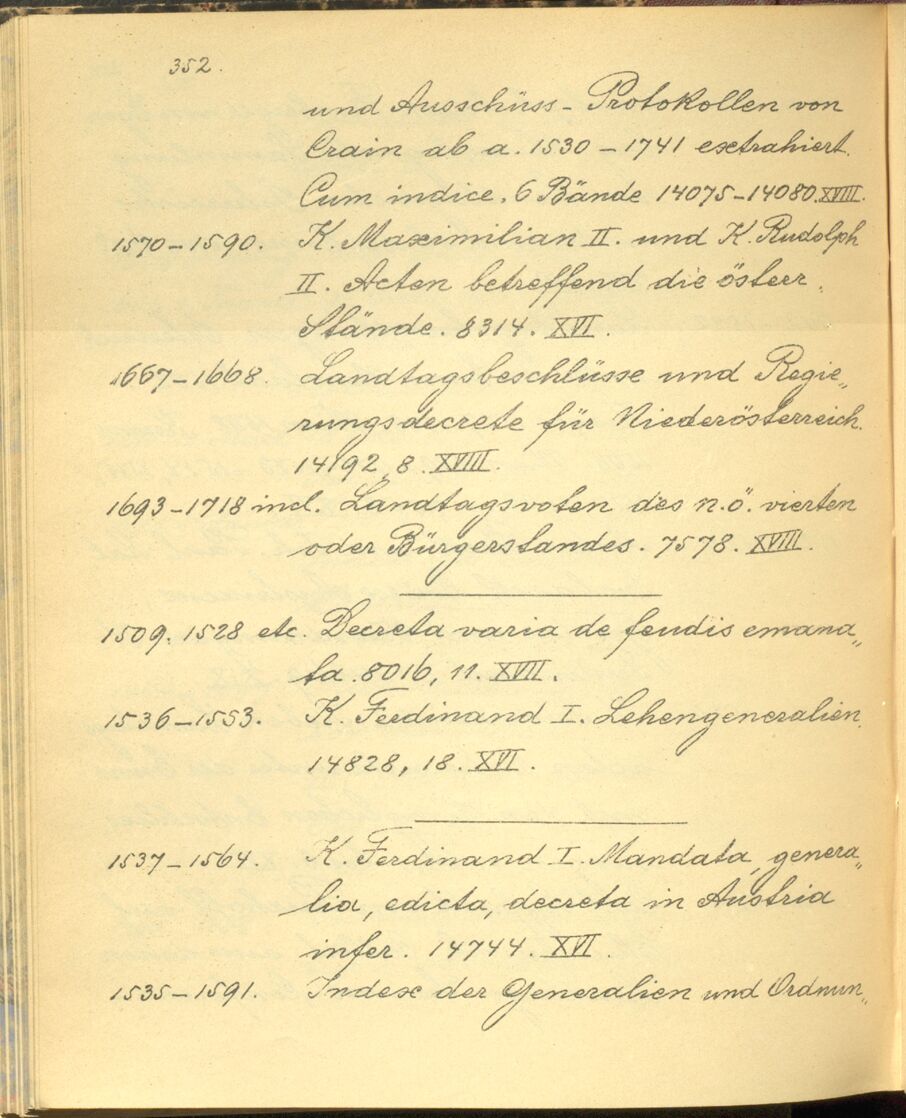 352.
und Ausschüss - Protokollen von
Crain ab a. 1530 - 1741 extrahiert.
Cum indice. 6 Bände 14075-14080. XVIII.
1570-1590. K. Maximilian II. und K. Rudolph
II. Acten betreffend die österr.
Stände. 8314. XVI.
1667-1668. Landtagsbeschlüsse und Regie„
rungsdecrete für Niederösterreich.
14192, 8. XVIII.
1693-1718 incl. Landtagsvoten des n.ö. vierten
oder Bürgerstandes. 7578. XVIII.
1509. 1528 etc. Decreta varia de feudis emana„
ta. 8016, 11. XVII.
1536-1553. K. Ferdinand I. Lehengeneralien.
14828, 18. XVI.
1537-1564. K. Ferdinand I. Mandata, genera„
lia, edicta, decreta in Austria
infer. 14744. XVI.
1535-1591. Index der Generalien und Ordnun„